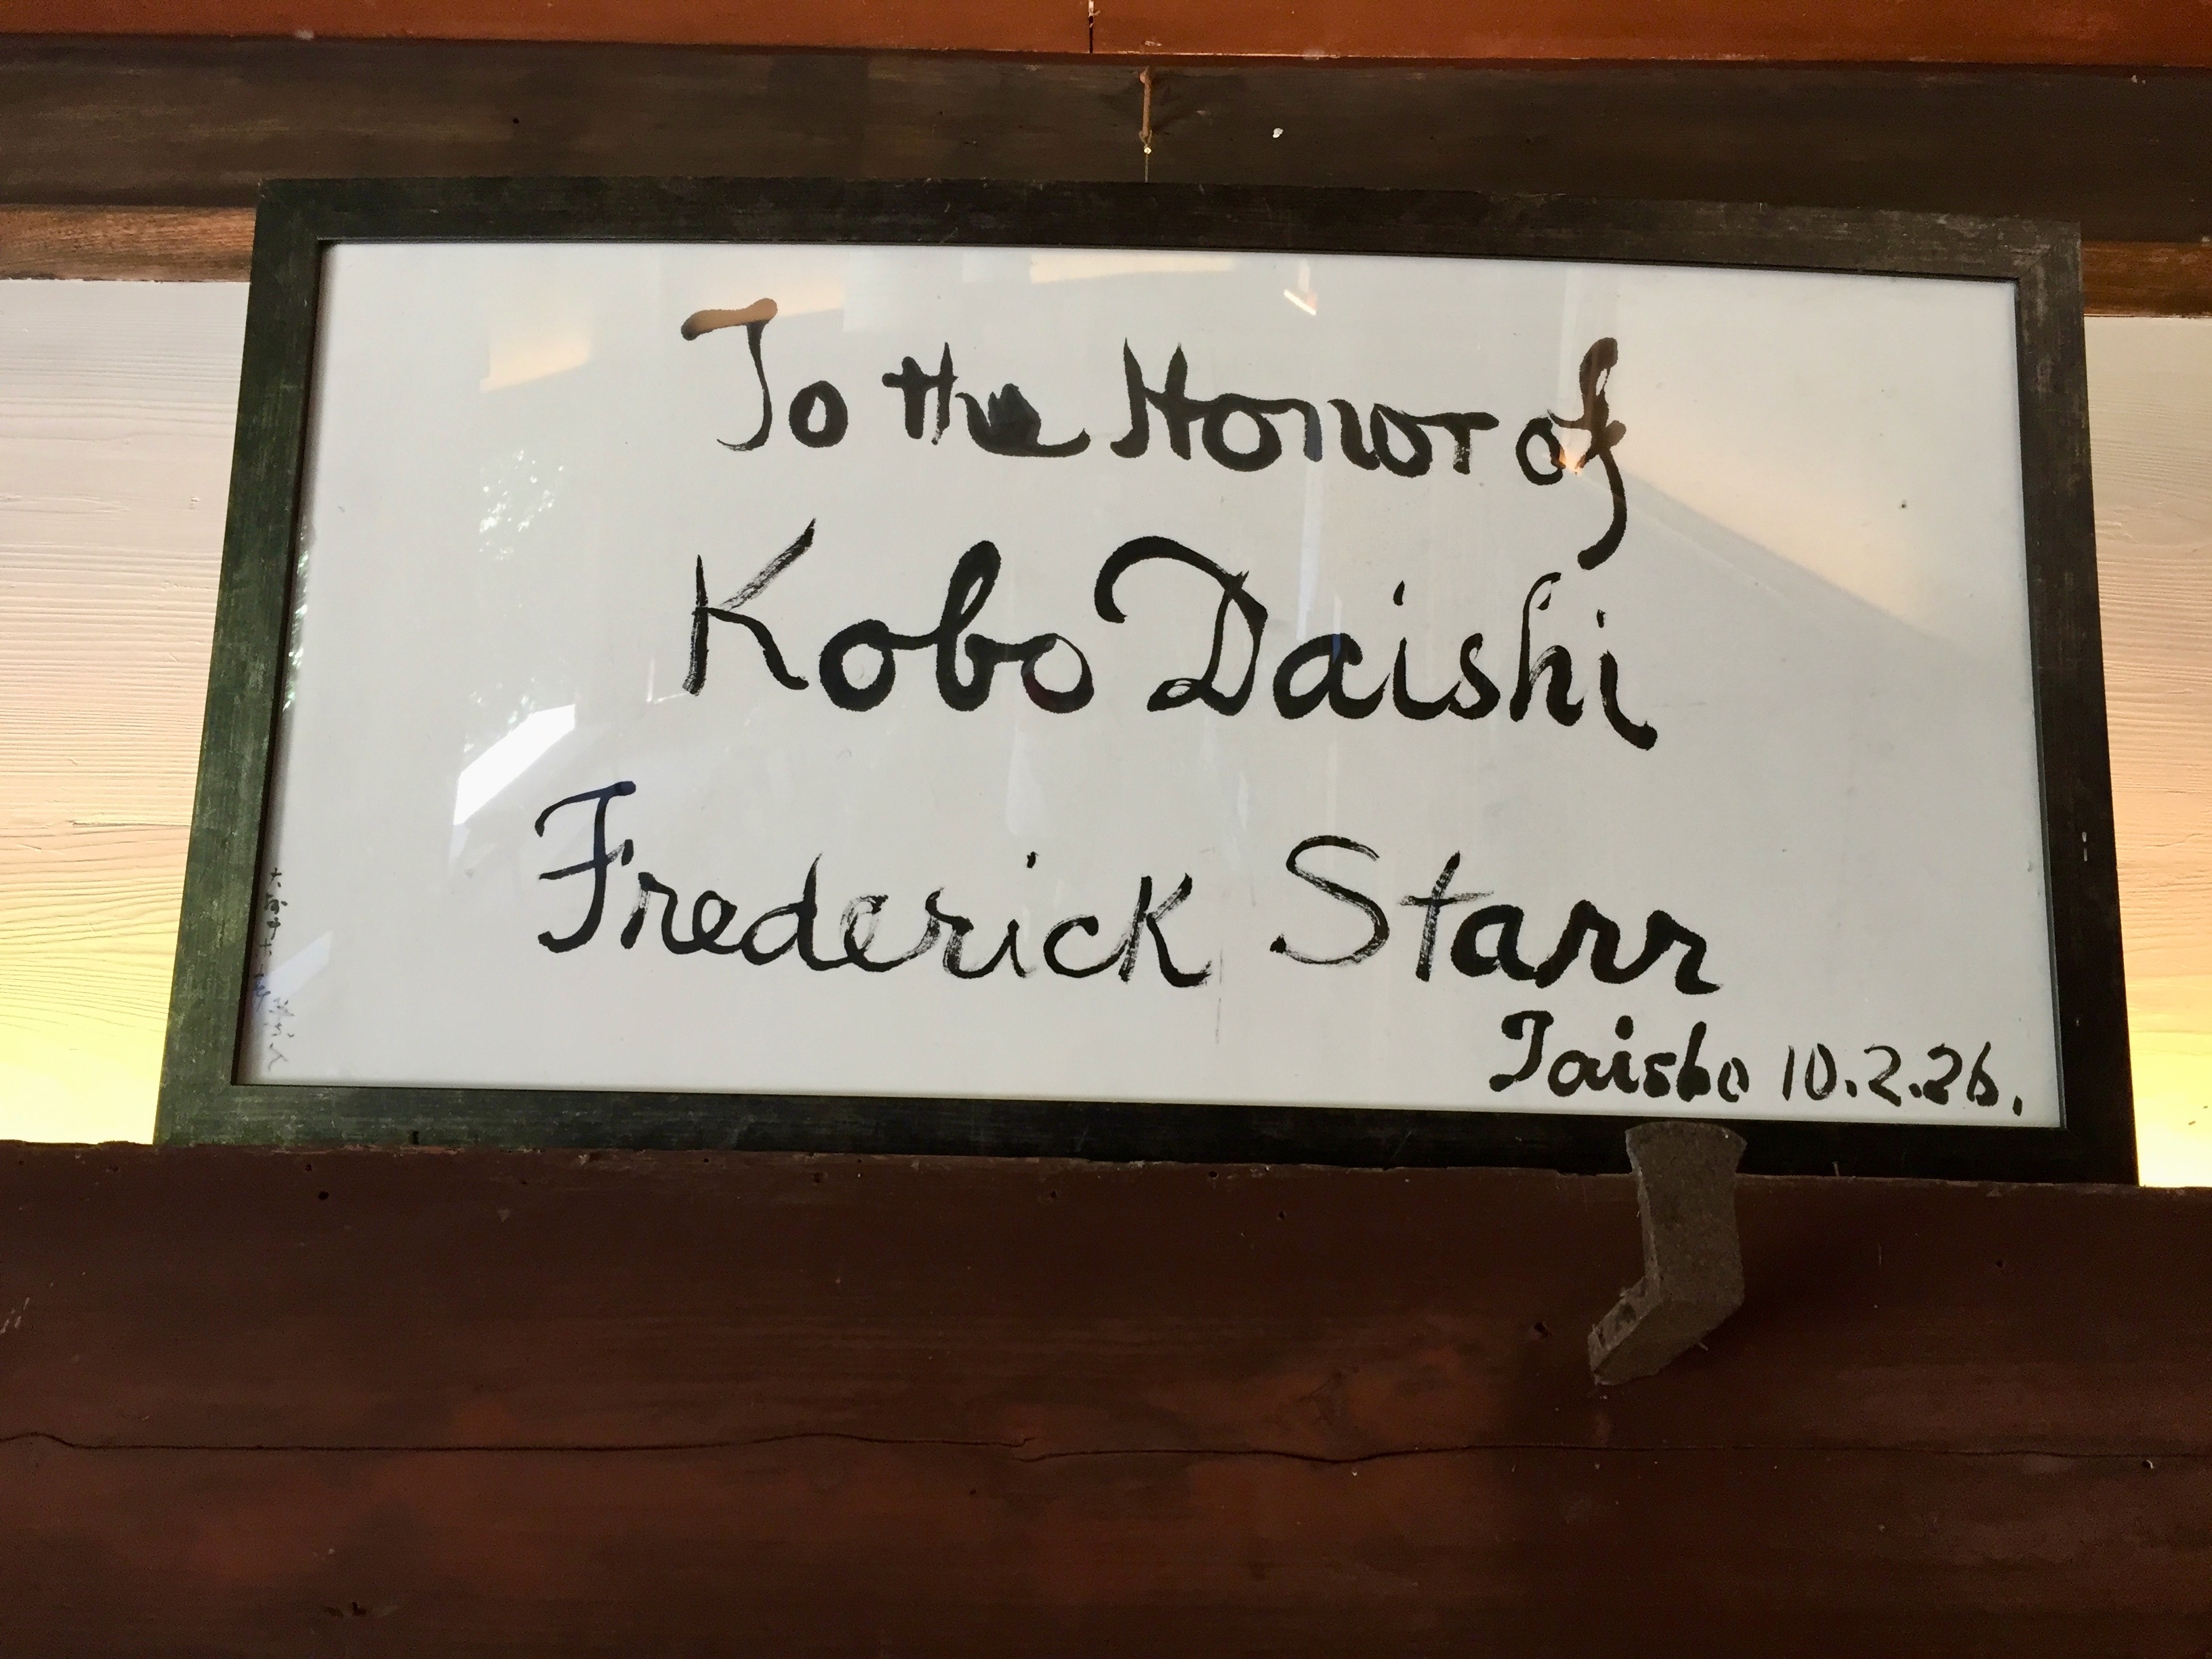 To the Honor of
Kobo Daishi
Frederick Starr
Taisho 10.2.26.